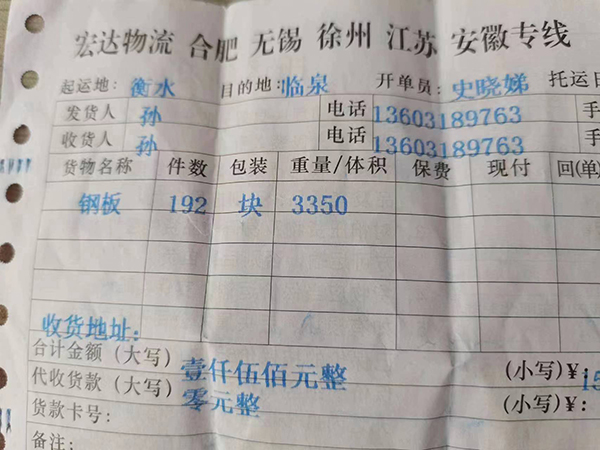 宏达物流 合肥 无锡 徐州 江苏 安徽专线
起运地: 衡水 目的地: 临泉 开单员: 史晓娣 托运日
发货人 孙 电话 13603189763 手
收货人 孙 电话 13603189763 手
货物名称 件数 包装 重量/体积 保费 现付 回(单)
钢板 192 块 3350
收货地址:
合计金额(大写) 壹仟伍佰元整 (小写)¥: 15
代收货款(大写) 零元整 (小写)¥:
货款卡号:
备注: